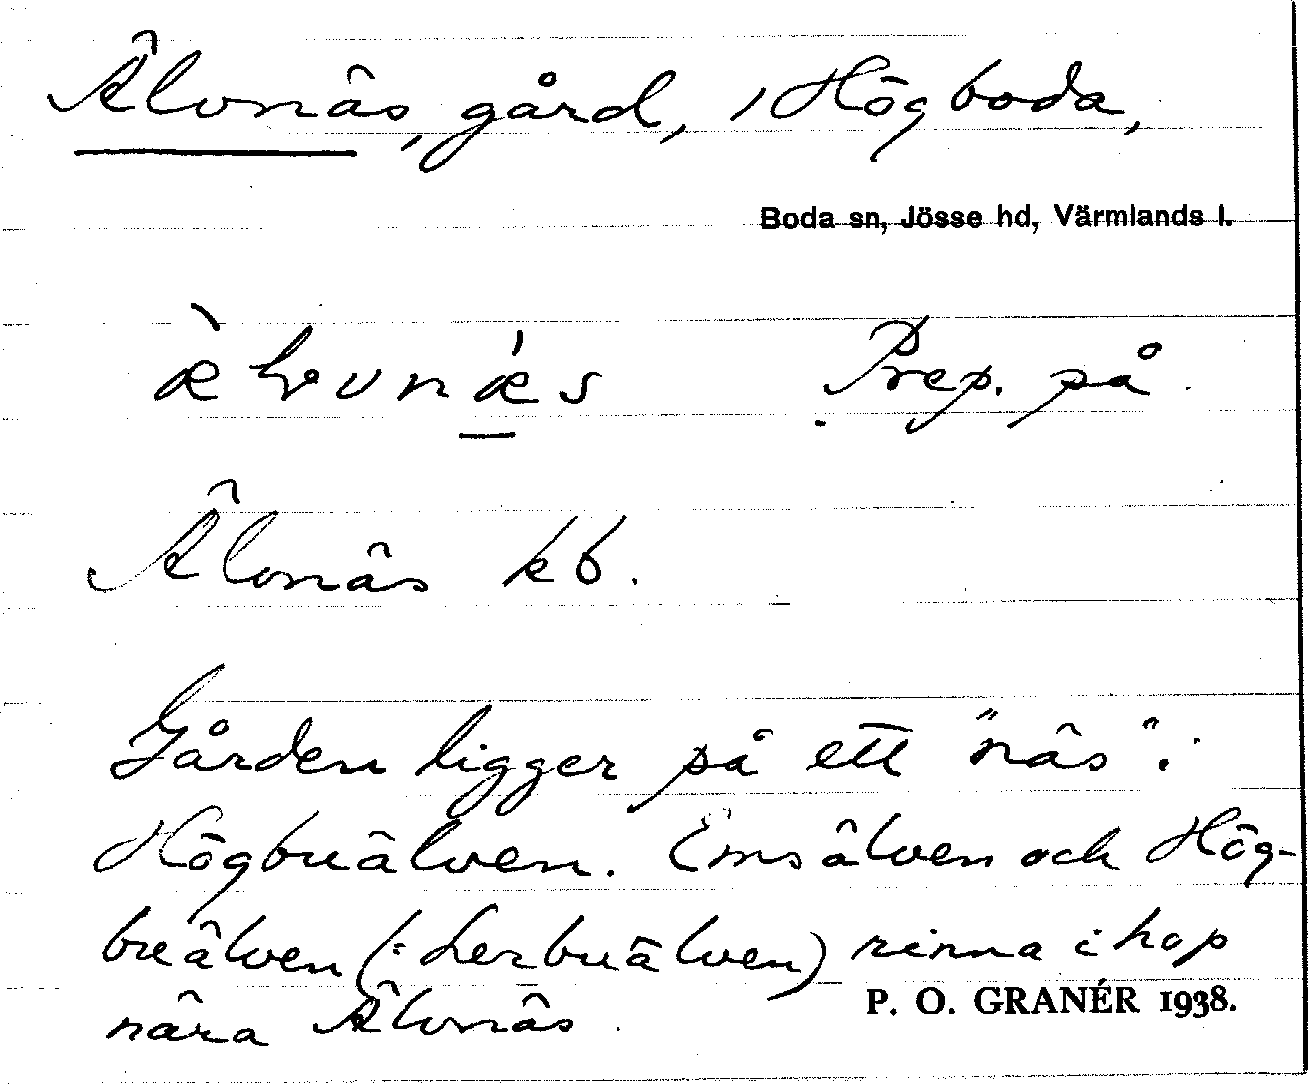 Älvnäs, gård, i Högboda,
Boda sn, Jösse hd, Värmlands l.
Prep. på
Älvnäs kb.
Gården ligger på ett "näs" i
Högbuälven. Emsälven och Hög-
buälven (: Lerbuälven) rinna ihop
nära Älvnäs.
P. O. GRANÉR 1938.